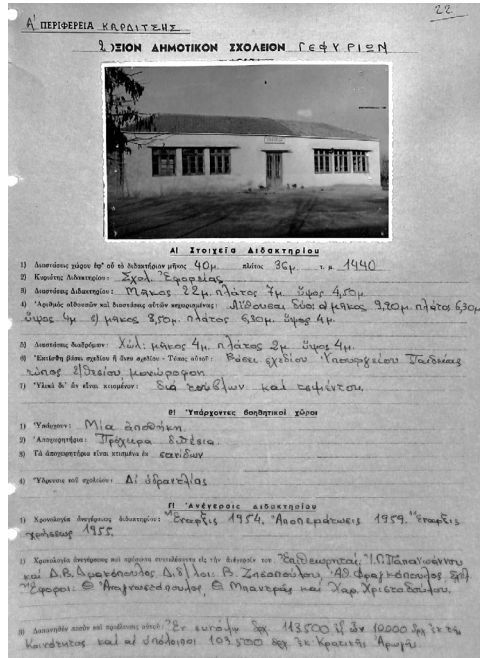 22
Α' ΠΕΡΙΦΕΡΕΙΑ ΚΑΡΔΙΤΣΗΣ
2)ΞΙΟΝ ΔΗΜΟΤΙΚΟΝ ΣΧΟΛΕΙΟΝ ΓΕΦΥΡΙΩΝ
Α) Στοιχεία Διδακτηρίου
1) Διαστάσεις χώρου ἐφ' οὗ τὸ διδακτήριον μῆκος 40μ. πλάτος 36μ τ. μ. 1440
2) Κυριότης Διδακτηρίου: Σχολ. Ἐφορείας
3) Διαστάσεις Διδακτηρίου: Μῆκος 22μ. πλάτος 7μ ὕψος 4,50μ.
4) Ἀριθμὸς αἰθουσῶν καὶ διαστάσεις αὐτῶν κεχωρισμένως: Αἴθουσαι δύο: α) μῆκος 9,20μ. πλάτος 6,30μ
ὕψος 4μ. μῆκος 8,50μ. πλάτος 6,30μ. ὕψος 4μ.
5) Διαστάσεις διαδρόμου: Χωλ: μῆκος 4μ. πλάτος 2μ ὕψος 4μ.
6) Ἐκτίσθη βάσει σχεδίου ἢ ἄνευ σχεδίου - Τύπος αὐτοῦ: Βάσει σχεδίου Ὑπουργείου Παιδείας
τύπος 2/θεσίου, μονώροφον
7) Ὑλικὰ δι' ὧν εἶναι κτισμένον: διὰ τούβλων καὶ τσιμέντου.
Β) Ὑπάρχοντες βοηθητικοὶ χῶροι
1) Ὑπάρχουν: Μία ἀποθήκη.
2) Ἀποχωρητήρια: Πρόχειρα διθέσια.
3) Τὰ ἀποχωρητήρια εἶναι κτισμένα ἐκ σανίδων
4) Ὕδρευσις τοῦ σχολείου: Δι' ὑδραντλίας
Γ) Ἀνέγερσις Διδακτηρίου
1) Χρονολογία ἀνεγέρσεως διδακτηρίου: Ἔναρξις 1954. Ἀποπεράτωσις 1959. Ἔναρξις
χρήσεως 1955.
2) Χρονολογία ἀνεγέρσεως καὶ πρόσωπα συντελέσαντα εἰς τὴν ἀνέγερσίν του: Ἐπιθεωρηταί: Ι.Γ. Παπαϊωάννου
καὶ Δ.Β. Δ/λοι: Β. Ζησοπούλου, Ἀθ. Φραγκόπουλος
Ἔφοροι: Θ Ἀναγνωστόπουλος, Θ Μπαντρᾶς καὶ Χαρ. Χριστοδούλου.
3) Δαπανηθὲν ποσὸν καὶ προέλευσις αὐτοῦ: Ἐν συνόλῳ δρχ. 113.500 ἐξ ὧν 10.000 δρχ ἐκ τῆς
Κοινότητος καὶ αἱ ὑπόλοιποι 103.500 δρχ ἐκ Κρατικῆς Ἀρωγῆς